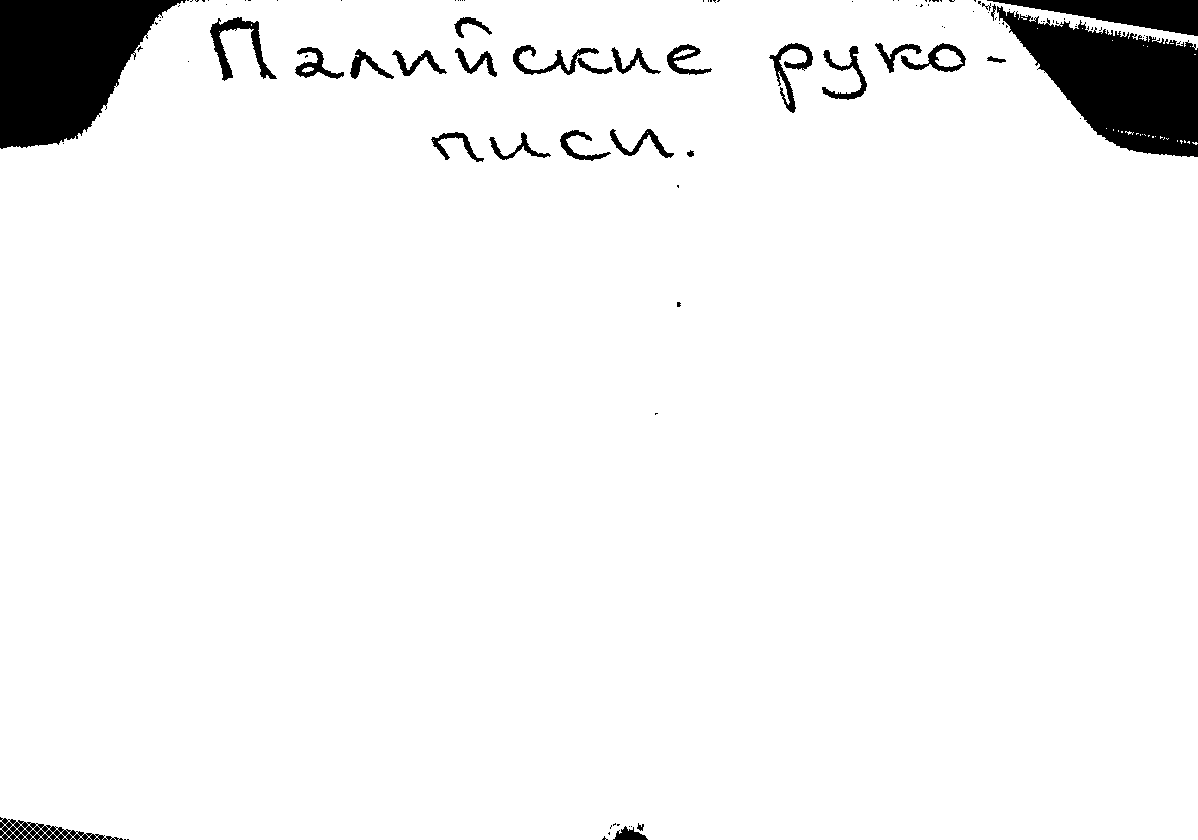 Палийские руко-
писи.